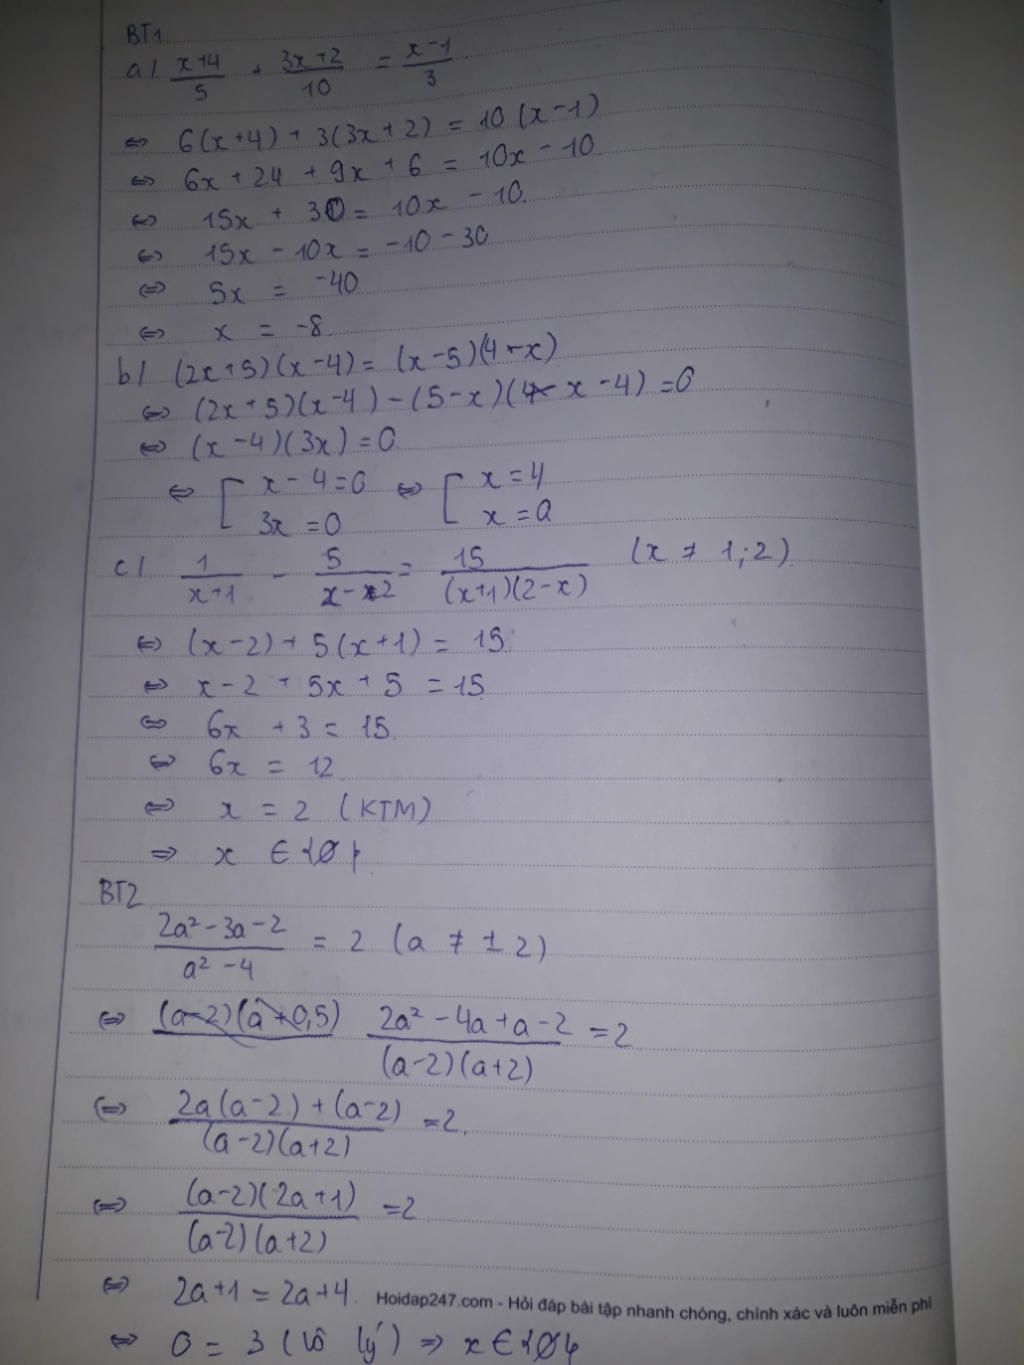 BT1
a/ (x+4)/5 + (3x+2)/10 = (x-1)/3
⇔ 6(x+4) + 3(3x+2) = 10(x-1)
⇔ 6x + 24 + 9x + 6 = 10x - 10
⇔ 15x + 30 = 10x - 10.
⇔ 15x - 10x = -10 - 30
⇔ 5x = -40
⇔ x = -8.
b/ (2x+5)(x-4) = (x-5)(4-x)
⇔ (2x+5)(x-4) - (5-x)(x-4) = 0
⇔ (x-4)(3x) = 0
⇔ [ x-4=0 ⇔ [ x=4
3x=0 x=0
c/ 1/(x+1) - 5/(x-2) = 15/((x+1)(2-x)) (x ≠ 1;2)
⇔ (x-2) + 5(x+1) = 15
⇔ x-2 + 5x + 5 = 15
⇔ 6x + 3 = 15.
⇔ 6x = 12
⇔ x = 2 (KTM)
⇒ x ∈ {Ø}
BT2
(2a²-3a-2)/(a²-4) = 2 (a ≠ ±2)
⇔ (a-2)(a+0,5) (2a²-4a+a-2)/((a-2)(a+2)) = 2
⇔ (2a(a-2)+(a-2))/((a-2)(a+2)) = 2.
⇔ ((a-2)(2a+1))/((a-2)(a+2)) = 2
⇔ 2a+1 = 2a+4.
Hoidap247.com - Hỏi đáp bài tập nhanh chóng, chính xác và luôn miễn phí
⇔ 0 = 3 (Vô lý) ⇒ x ∈ {Ø}